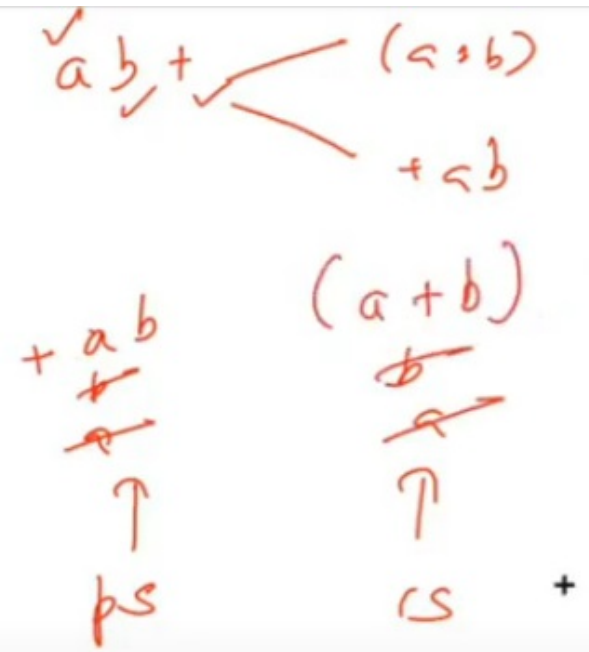 ab+ (a+b)
+ab
+ab (a+b)
b b
a a
ps is